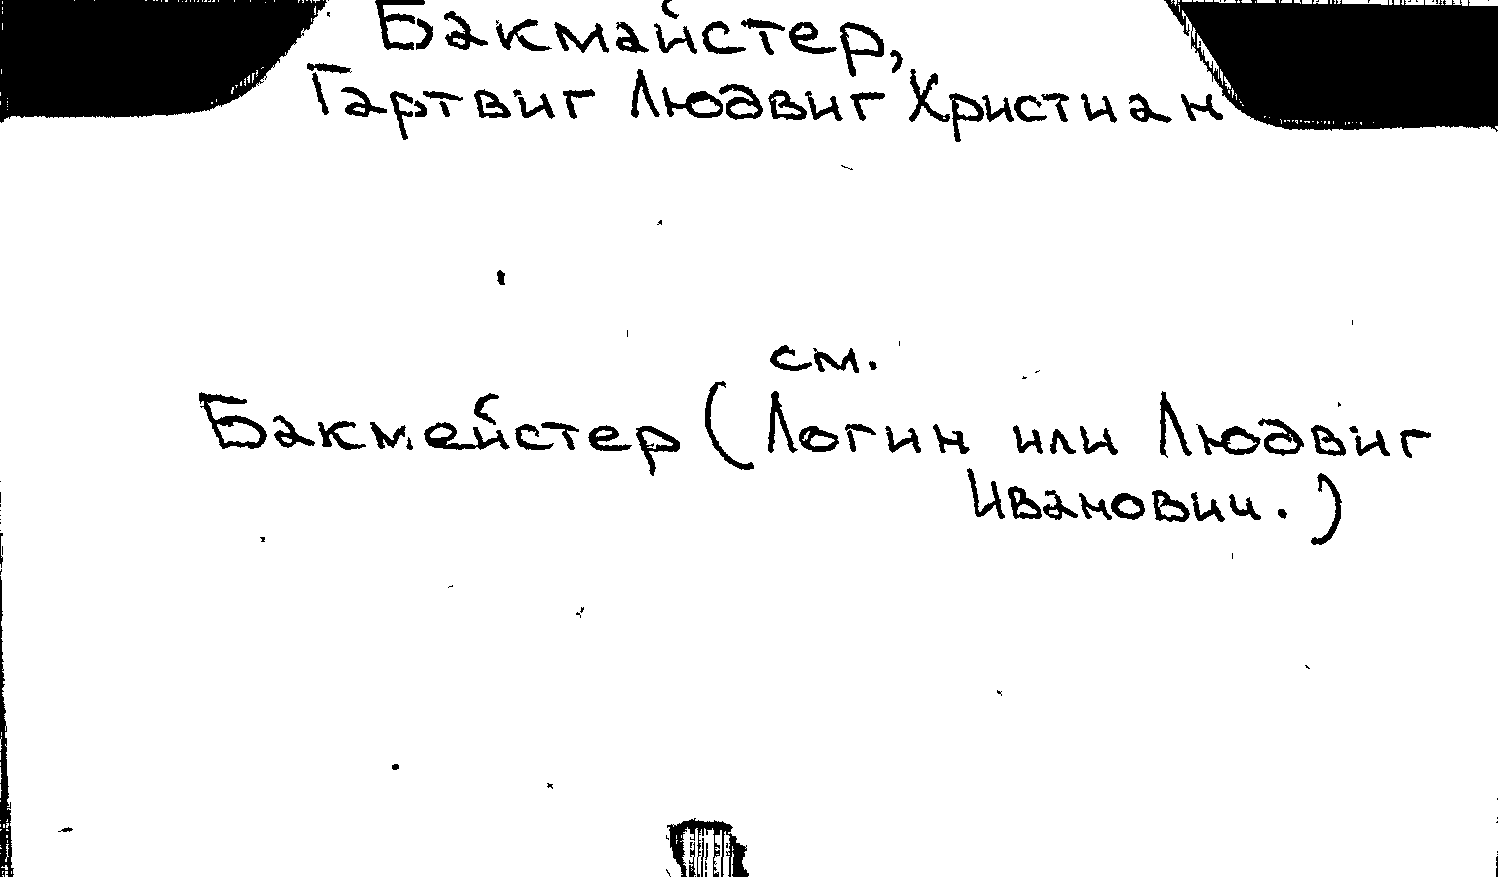 Бакмайстер,
Гартвиг Людвиг Христиан
см.
Бакмейстер (Логин или Людвиг
Иванович.)